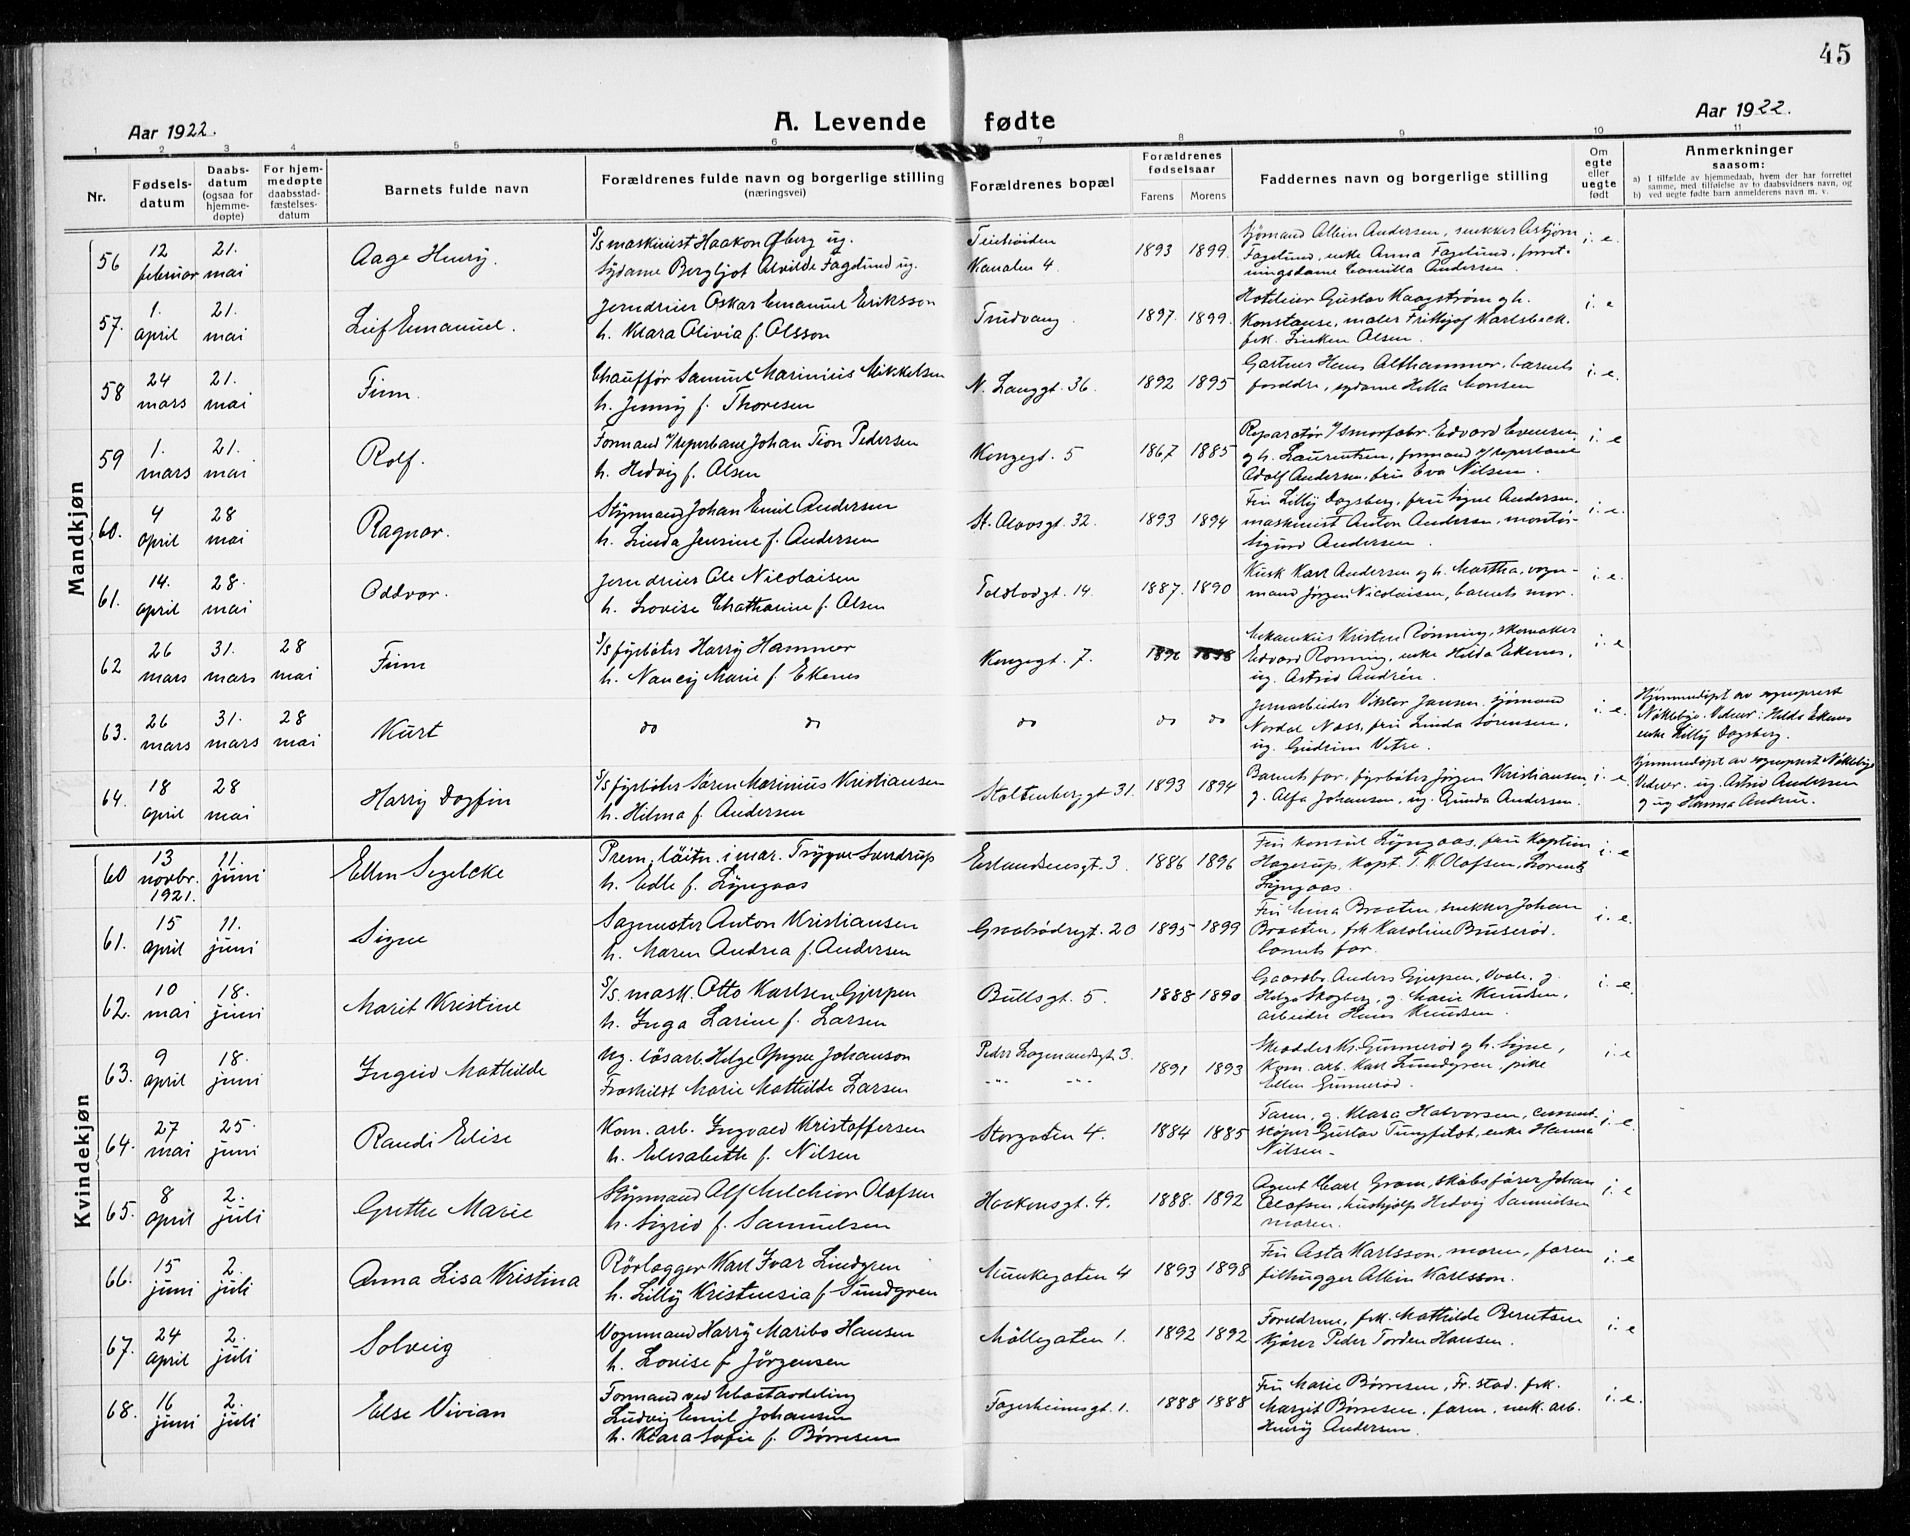 45
Aar 1922.
A. Levende fødte
Aar 1922.
1 2 3 4 5 6 7 8 9 10 11
Nr.
Fødsels-
datum
Daabs-
datum
(ogsaa for
hjemme-
døpte)
For hjem-
medøpte
daabsstad-
fæstelses-
datum
Barnets fulde navn
Forældrenes fulde navn og borgerlige stilling
(næringsvei)
Forældrenes bopæl
Forældrenes
fødselsaar
Farens Morens
Faddernes navn og borgerlige stilling
Om
egte
eller
uegte
født
Anmerkninger
saasom:
a) I tilfælde av hjemmedaab, hvem der har forrettet
samme, med tilføielse av to daabsvidners navn, og
b) ved uegte fødte barn anmelderens navn m. v.
Mandkjøn
56
12 februar
21. mai
Aage Henry.
S/s maskinist Haakon Øberg ug.
Sydame Bergljot Alvilde Fagelund ug.
Kanalen 4.
1893 1899.
Sjømand Albin Andersen, snekker Asbjørn
Fagelund, enke Anna Fagelund, forret-
ningsdame Camilla Andersen.
i. e.
57.
1. april
21. mai
Leif Emanuel.
Jerndreier Oskar Emanuel Eriksson
h. Klara Olivia f. Olsson
Trudvang.
1897. 1899.
Hoteleier Gustav Kaagstrøm og h.
Konstanse, maler Frithjof Karlsbeck.
frk. Linken Olsen.
i. e
58
24 mars
21. mai
Finn.
Chauffør Samuel Marinius Mikkelsen
h. Jenny f. Thoresen
N. Langgt. 36.
1892 1895
Gartner Hans Althammer, barnets
foreldre, sydame Hilla Monsen
i. e.
59
1. mars
21. mai
Rolf.
Formand v/reperbane Johan Tion Pedersen
h. Hedvig f. Olsen
Kongegt. 5
1867 1885
Reparatør v/smørfabr. Edvard Evensen
og h. Laurentsen, formand v/reperbane
Adolf Andersen, fru Eva Nilsen.
i. e
60.
4 april
28 mai
Ragnar.
Styrmand Johan Emil Andersen
h. Linda Jensine f. Andersen
St. Olavsgt. 32.
1893 1894
Fru Lilly Dagsberg, fru Signe Andersen.
maskinist Anton Andersen, montør
Sigurd Andersen.
i. e.
61.
14. april
28. mai
Oddvar.
Jerndreier Ole Nicolaisen
h. Lovise Chatharine f. Olsen
Toldbodgt. 14.
1887. 1890
Kusk Karl Andersen og h. Martha, vogn-
mand Jørgen Nicolaisen, barnets mor.
i. e.
62
26 mars
31. mars
28 mai
Finn
S/s fyrbøter Harry Hammer
h. Nancy Marie f. Ekenes
Kongegt. 7.
1896 1898
Mekanikus Kristen Rønning, skomaker
Edvard Rønning, enke Hilda Ekenes,
ug. Astrid Andrén.
i. e.
63.
26 mars
31. mars
28 mai
Kurt
do do
do
do do
Jernarbeider Viktor Jansen. sjømand
Nordal Næss, fru Linda Sørensen,
ug. Gudrun Vetre.
i. e.
Hjemmedøpt av sogneprest
Nøklebye. Vidner: Hilda Ekenes
enke Lilly Dagsberg.
64.
18 april
28 mai
Harry Dagfin
S/s fyrbøter Søren Marinius Kristiansen
h. Hilma f. Andersen
Stoltenberggt 31.
1893 1894
Barnets far, fyrbøter Jørgen Kristiansen,
g. Alfa Johansen, ug. Gunda Andersen.
i. e
Hjemmedøpt av sogneprest Nøklebye
Vidner. ug Astrid Andersen
g ug Hanna Andrine.
Kvindekjøn
60
13 novbr. 1921.
11. juni
Ellen Segelcke
Prem. löitn. i mar. Trygve Sandrup
h. Edle f. Lyngaas
Erlandsensgt. 3.
1886 1896
Fru konsul Lyngaas, fru kaptein
Hagerup, kapt. T. K. Olafsen, Lorentz
Lyngaas.
i. e
61.
15 april
11. juni
Signe
Sagmester Anton Kristiansen
h. Maren Andrea f. Andersen
Graabrödregt. 20
1895 1899
Fru Mina Braaten, snekker Johan
Braaten, frk Karoline Bruserød.
barnets far.
i. e.
62.
10 mai
18. juni
Marit Kristine
S/s. mask. Otto Karlsen Gjerpen
h. Inga Larine f. Larsen
Bullsgt. 5.
1888 1890
Gaardbr. Anders Gjerpen, Vaale, g.
Helga Skogberg, g. Marie Knudsen,
arbeider Hans Knudsen.
i. e.
63.
9 april
18. juni
Ingrid Mathilde
Ug. løsarb. Helge Yngve Johanson
Froshildt Marie Mathilde Larsen
Peder Lagmandsgt. 3.
" "
1891 1893
Skrædder Kr. Gunnerød og h. Signe,
Kom. arb. Karl Lundgren, pike
Ellen Gunnerød.
i. e
64.
27 mai
25. juni
Randi Elise
Kom. arb. Ingvald Kristoffersen
h. Elisabeth f. Nilsen
Storgaten 4.
1884 1885
Faren, g. Klara Halvorsen, cement-
støper Gustav Tungfelot, enke Hanna
Nilsen.
i. e.
65.
8 april
2. juli
Grethe Marie
Styrmand Alf Melchior Olafsen
h. Sigrid f. Samuelsen
Haakonsgt. 4.
1888. 1892
Agent Carl Gram, skibsfører Johan
Olafsen, hushjelp Hedvig Samuelsen
moren.
i. e
66.
15 juni
2. juli
Anna Lisa Kristina
Rörlægger Karl Ivar Lindgren
h. Lilly Kristensia f Sundgren
Munkegaten 4
1893 1898
Fru Asta Karlsson, moren, faren
filhugger Albin Karlsson.
i. e
67.
24 april
2. juli
Solveig
Vognmand Harry Maribo Hansen
h. Lovise f Jörgensen
Möllegaten 1.
1892 1892
Foreldrene, frk. Mathilde Berntsen
kjører Peder Torden Hansen.
i. e
68.
16 juni
2. juli
Else Vivian
Formand ved
Ludvig Emil Johansen
h. Klara Sofie f. Børresen
Fagerheimsgt. 1.
1888 1888
Fru Marie Børresen, Fr.stad. frk.
Margit Børresen. faren, mek. arb.
Henry Andersen.
i. e.